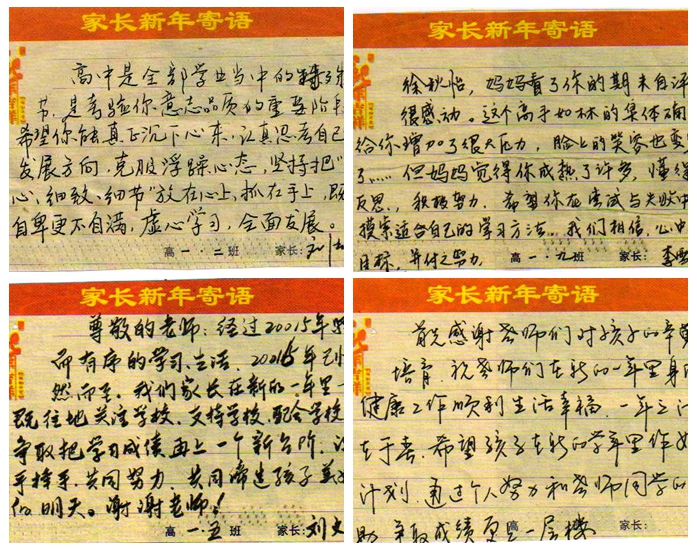 家长新年寄语
高中是全部学业当中的
节,是考验你意志品质的重要阶
希望你能真正沉下心来,认真思考自己
发展方向,克服浮躁心态,坚持把"
心、细致、细节"放在心上,抓在手上,既
自卑更不自满,虚心学习,全面发展。
高 一·二 班 家长:
家长新年寄语
徐秋怡,妈妈看了你的期末自评
很感动。这个高手如林的集体确
给你增加了很大压力,脸上的笑容也变
了……但妈妈觉得你成熟了许多,懂得
反思,积极努力.希望你在尝试与失败中
摸索适合自己的学习方法。我们相信,心中
目标,并付之努力
高 一·九 班 家长:李
家长新年寄语
尊敬的老师:经过20015年
而有序的学习、生活.2016年已悄
然而至。我们家长在新的一年里一
既往地关注学校,支持学校,配合学校
争取把学习成绩再上一个新台阶.
手携手,共同努力,共同缔造孩子美
的明天。谢谢老师!
高 一·五 班 家长:刘文
家长新年寄语
首先感谢老师们对孩子的辛
培育.祝老师们在新的一年里身
健康工作顺利生活幸福.一年之
在于春.希望孩子在新的学年里作
计划.通过个人努力和老师同学的
助争取成绩更上一层楼
高 家长: